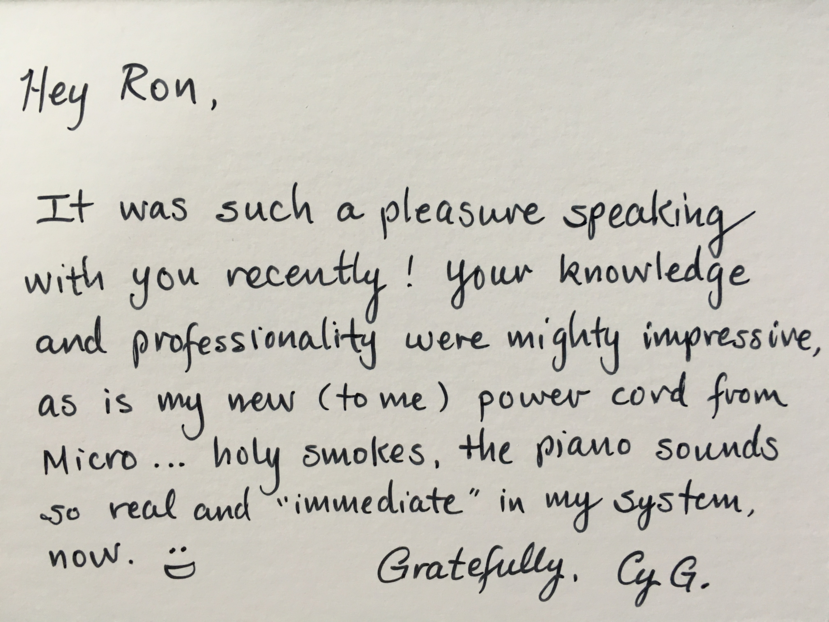 Hey Ron,
It was such a pleasure speaking
with you recently! Your knowledge
and professionality were mighty impressive,
as is my new (to me) power cord from
Micro... holy smokes, the piano sounds
so real and "immediate" in my system,
now. Ü
Gratefully, Cy G.